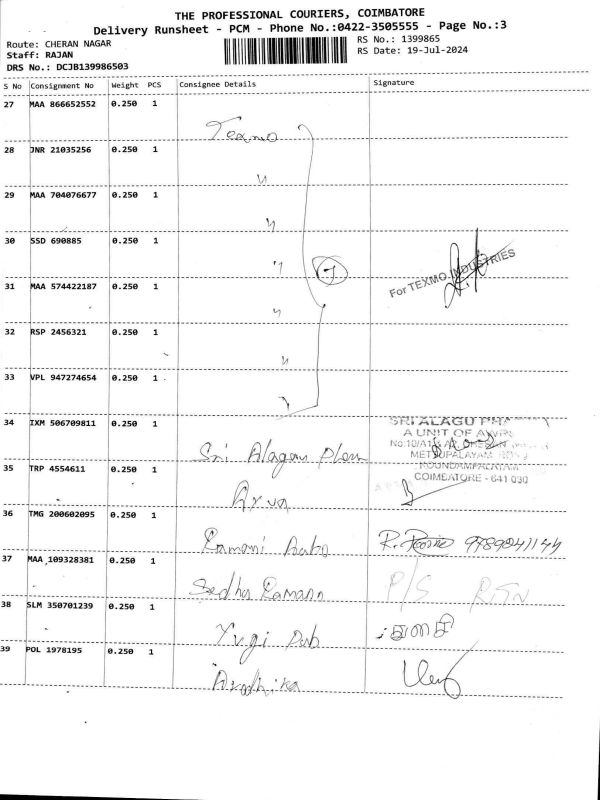 THE PROFESSIONAL COURIERS, COIMBATORE
Delivery Runsheet - PCM - Phone No.:0422-3505555 - Page No.:3
Route: CHERAN NAGAR
RS No.: 1399865
Staff: RAJAN
RS Date: 19-Jul-2024
DRS No.: DCJB139986503
S No Consignment No Weight PCS Consignee Details Signature
27 MAA 866652552 0.250 1
Texmo
28 JNR 21035256 0.250 1
〃
29 MAA 704076677 0.250 1
〃
30 SSD 690885 0.250 1
〃 7
For TEXMO INDUSTRIES
31 MAA 574422187 0.250 1
〃
32 RSP 2456321 0.250 1
〃
33 VPL 947274654 0.250 1
〃
34 IXM 506709811 0.250 1
SRI ALAGU
A UNIT OF
METTUPALAYAM
Sri Alagau
35 TRP 4554611 0.250 1
COIMBATORE - 641 030
Arva
36 TMG 200602095 0.250 1
Ramani Auto R. 9789041144
37 MAA 109328381 0.250 1
Sedhu Ramann P/S RTN
38 SLM 350701239 0.250 1
Yugi
துளசி
39 POL 1978195 0.250 1
Aradhika